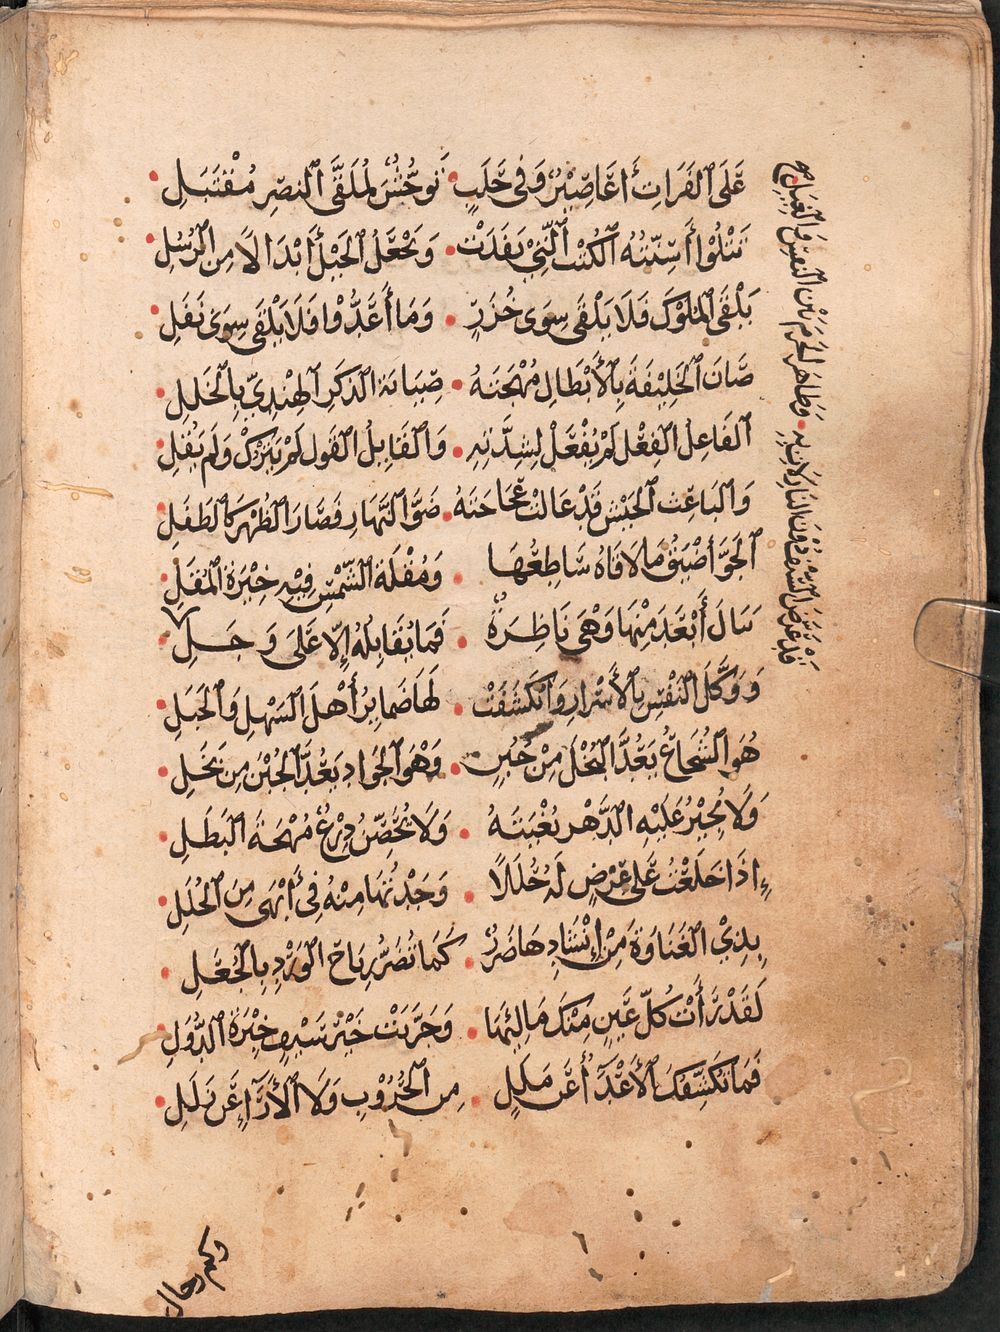 عَلَى ٱلفُرَاتِ أَعَاصِيرٌ وَفِي حَلَبٍ • تَوَحُّشٌ لِمُلَقَّى ٱلنَصْرِ مُقْتَبَلِ •
تَتْلُوا أَسِنَّتُهُ ٱلكُتْبَ ٱلَّتِي نَفَذَتْ • وَتَجْعَلُ ٱلخَيْلَ أَبْدَالًا مِنَ ٱلرُسُلِ •
يَلْقَى ٱلمُلُوكَ فَلَا يَلْقَى سِوَى جُزَرٍ • وَمَا أَعَدُّوْا فَلَا يَلْقَى سِوَى نَفَلِ •
صَانَ ٱلخَلِيفَةُ بِٱلأَبْطَالِ مُهْجَتَهُ • صِيَانَةَ ٱلذَكَرِ ٱلهِنْدِيِّ بِٱلخَلَلِ •
ٱلفَاعِلُ ٱلفِعْلَ لَمْ يُفْعَلْ لِشِدَّتِهِ • وَٱلقَايِلُ ٱلقَوْلَ لَمْ يُتْرَكْ وَلَمْ يُقَلِ •
وَٱلبَاعِثُ ٱلجَيْشَ قَدْ غَالَتْ عَجَاجَتُهُ • ضَوَّ ٱلنَّهَارِ فَصَارَ ٱلظُهْرُ كَٱلطَفَلِ •
ٱلجَوُّ أَضْيَقُ مَا لَاقَاهُ سَاطِعُهَا • وَمُقْلَةُ ٱلشَّمْسِ فِيْهِ حَيْرَةُ ٱلمُقَلِ •
يَنَالُ أَبْعَدَ مِنْهَا وَهْيَ نَاظِرَةٌ • فَمَا يُقَابِلُهُ إِلَّا عَلَى وَجَلِ
وَوَكَّلَ ٱلنَفْسَ بِٱلأَسْرَارِ وَٱنْكَشَفَتْ • لَهَا ضَمَايِرُ أَهْلِ ٱلسَهْلِ وَٱلجَبَلِ •
هُوَ ٱلشُجَاعُ يَعُدُّ ٱلبُخْلَ مِنْ جُبُنٍ • وَهْوَ ٱلجَوَادُ يَعُدُّ ٱلجُبْنَ مِنْ بَخَلِ •
وَلَا يُجِيْرُ عَلَيْهِ ٱلدَّهْرُ بُغْيَتَهُ • وَلَا تُحَصِّنُ دِرْعٌ مُهْجَةَ ٱلبَطَلِ •
إِذَا خَلَعْتُ عَلَى عِرْضٍ لَهُ حُلَلًا • وَجَدْتُهَا مِنْهُ فِي أَبْهَى مِنَ ٱلحُلَلِ •
بِذِيْ ٱلغَبَاوَةِ مِنْ إِنْشَادِهَا ضَرَرٌ • كَمَا تُضَرُّ رِيَاحُ ٱلوَرْدِ بِٱلجُعَلِ •
لَقَدْ رَأَتْ كُلُّ عَيْنٍ مِنْكَ مَالِئَهَا • وَجَرَّبَتْ خَيْرَ سَيْفٍ خِيْرَةُ ٱلدُّوَلِ •
فَمَا تُكَشِّفُكَ ٱلأَعْدَآءُ عَنْ مَلَلٍ • مِنَ ٱلحُرُوْبِ وَلَا ٱلأَرَآءُ عَنْ زَلَلِ •
قَدْ عَرَضَ ٱلسَيْفَ دُوْنَ ٱلنَازِلَاتِ بِهِ • وَظَاهَرَ ٱلحَزْمَ بَيْنَ ٱلنَفْسِ وَٱلغِيَلِ • صح
وكم رجال